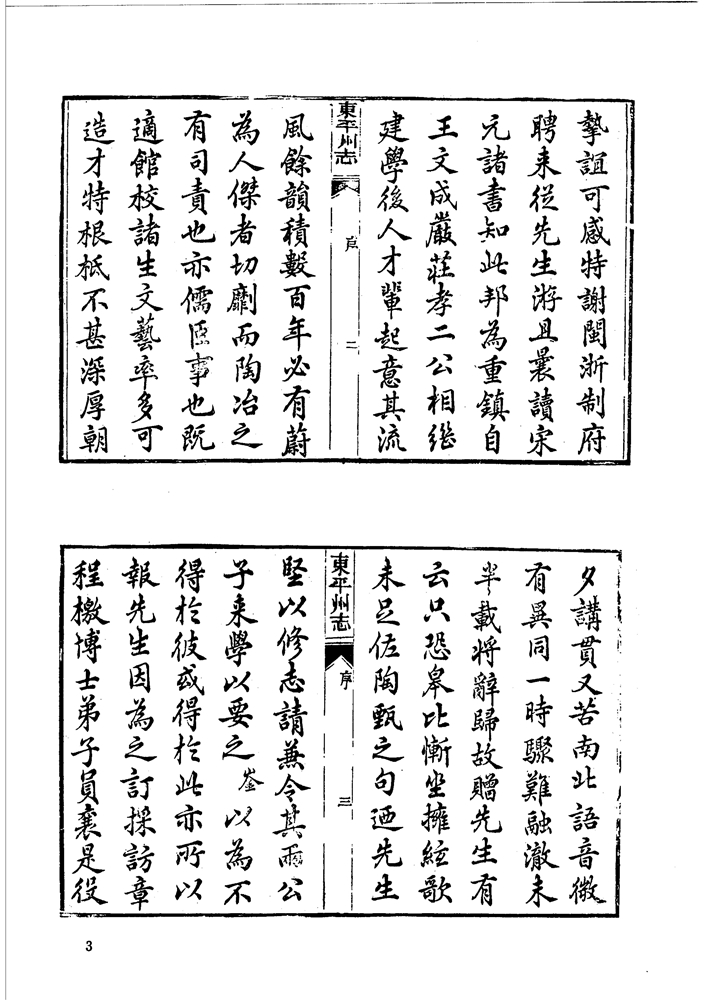 摯誼可感特謝閩浙制府
聘来從先生游且曩讀宋
元諸書知此邦為重鎮自
王文成嚴莊孝二公相継
建學後人才輩起意其流
東平州志
序
二
風餘韻積數百年必有蔚
為人傑者切劘而陶冶之
有司責也亦儒臣事也既
適館校諸生文藝率多可
造才特根柢不甚深厚朝
夕講貫又苦南北語音微
有異同一時驟難融澈未
半載將辭歸故贈先生有
云只恐皋比慚坐擁絃歌
未足佐陶甄之句迺先生
東平州志
序
三
堅以修志請兼令其兩公
子来學以要之崟以為不
得於彼或得於此亦所以
報先生因為之訂採訪章
程檄博士弟子員襄是役
3